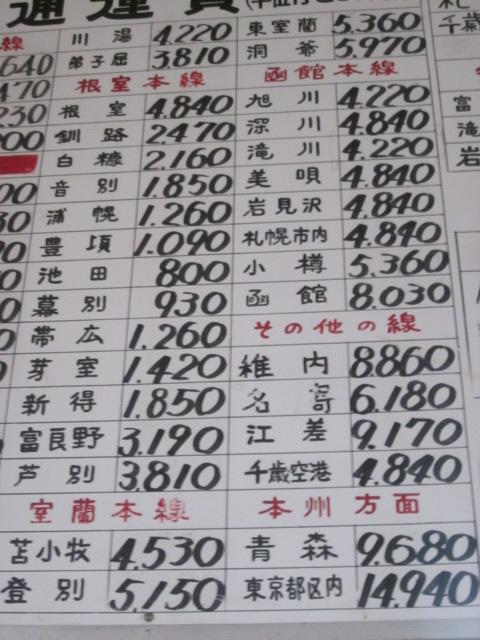 川湯 4.220
弟子屈 3.810
根室本線
根室 4.840
釧路 2.470
白糠 2.160
音別 1.850
浦幌 1.260
豊頃 1.090
池田 800
幕別 930
帯広 1.260
芽室 1.420
新得 1.850
富良野 3.190
芦別 3.810
室蘭本線
苫小牧 4.530
登別 5.150
東室蘭 5.360
洞爺 5.970
函館本線
旭川 4.220
深川 4.840
滝川 4.220
美唄 4.840
岩見沢 4.840
札幌市内 4.840
小樽 5.360
函館 8.030
その他の線
稚内 8.860
名寄 6.180
江差 9.170
千歳空港 4.840
本州方面
青森 9.680
東京都区内 14.940